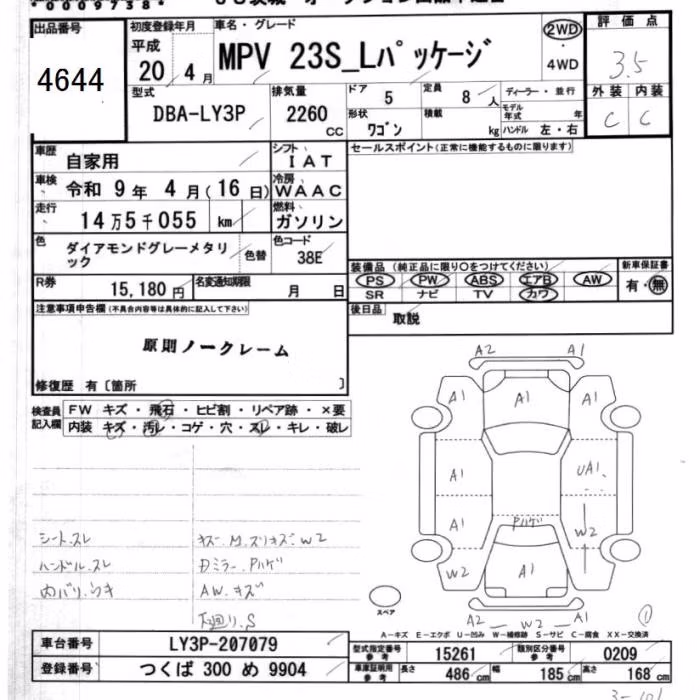 *0009738*
出品番号
4644
初度登録年月
平成
20年4月
車名・グレード
MPV 23S_Lパッケージ
2WD
・
4WD
評価点
3.5
外装 内装
C C
型式
DBA-LY3P
排気量
2260 CC
ドア
5
定員
8人
形状
ワゴン
積載
kg
ディーラー・並行
モデル年式 年
ハンドル 左・右
車歴
自家用
シフト
IAT
車検
令和 9年 4月(16日)
冷房
WAAC
走行
14万5千055 km
燃料
ガソリン
色
ダイアモンドグレーメタリック
色替
色コード
38E
R券
15,180円
名変通知期限
月 日
セールスポイント(正常に機能するものに限ります)
装備品(純正品に限り○をつけてください)
PS PW ABS エアB AW
SR ナビ TV カワ
新車保証書
有・無
後日品
取説
注意事項申告欄(不具合内容等は具体的に記入して下さい)
原則ノークレーム
修復歴 有〔箇所 〕
検査員記入欄
FW キズ・飛石・ヒビ割・リペア跡・×要
内装 キズ・汚レ・コゲ・穴・スレ・キレ・破レ
シート.スレ
ハンドル.スレ
内バリ.ウキ
キズ.M.スリキズ.W2
Dミラー.Pハゲ
AW.キズ
下廻り.S
A2 A1
A1 A1 A1
A1 UA1
A1 W2
Pハゲ
W2 A1
A2 W2 A1
スペア
①
A-キズ E-エクボ U-凹み W-補修跡 S-サビ C-腐食 XX-交換済
車台番号
LY3P-207079
登録番号
つくば 300 め 9904
型式指定番号 参考
15261
類別区分番号 参考
0209
車庫証明用 参考
長さ 486cm 幅 185cm 高さ 168cm